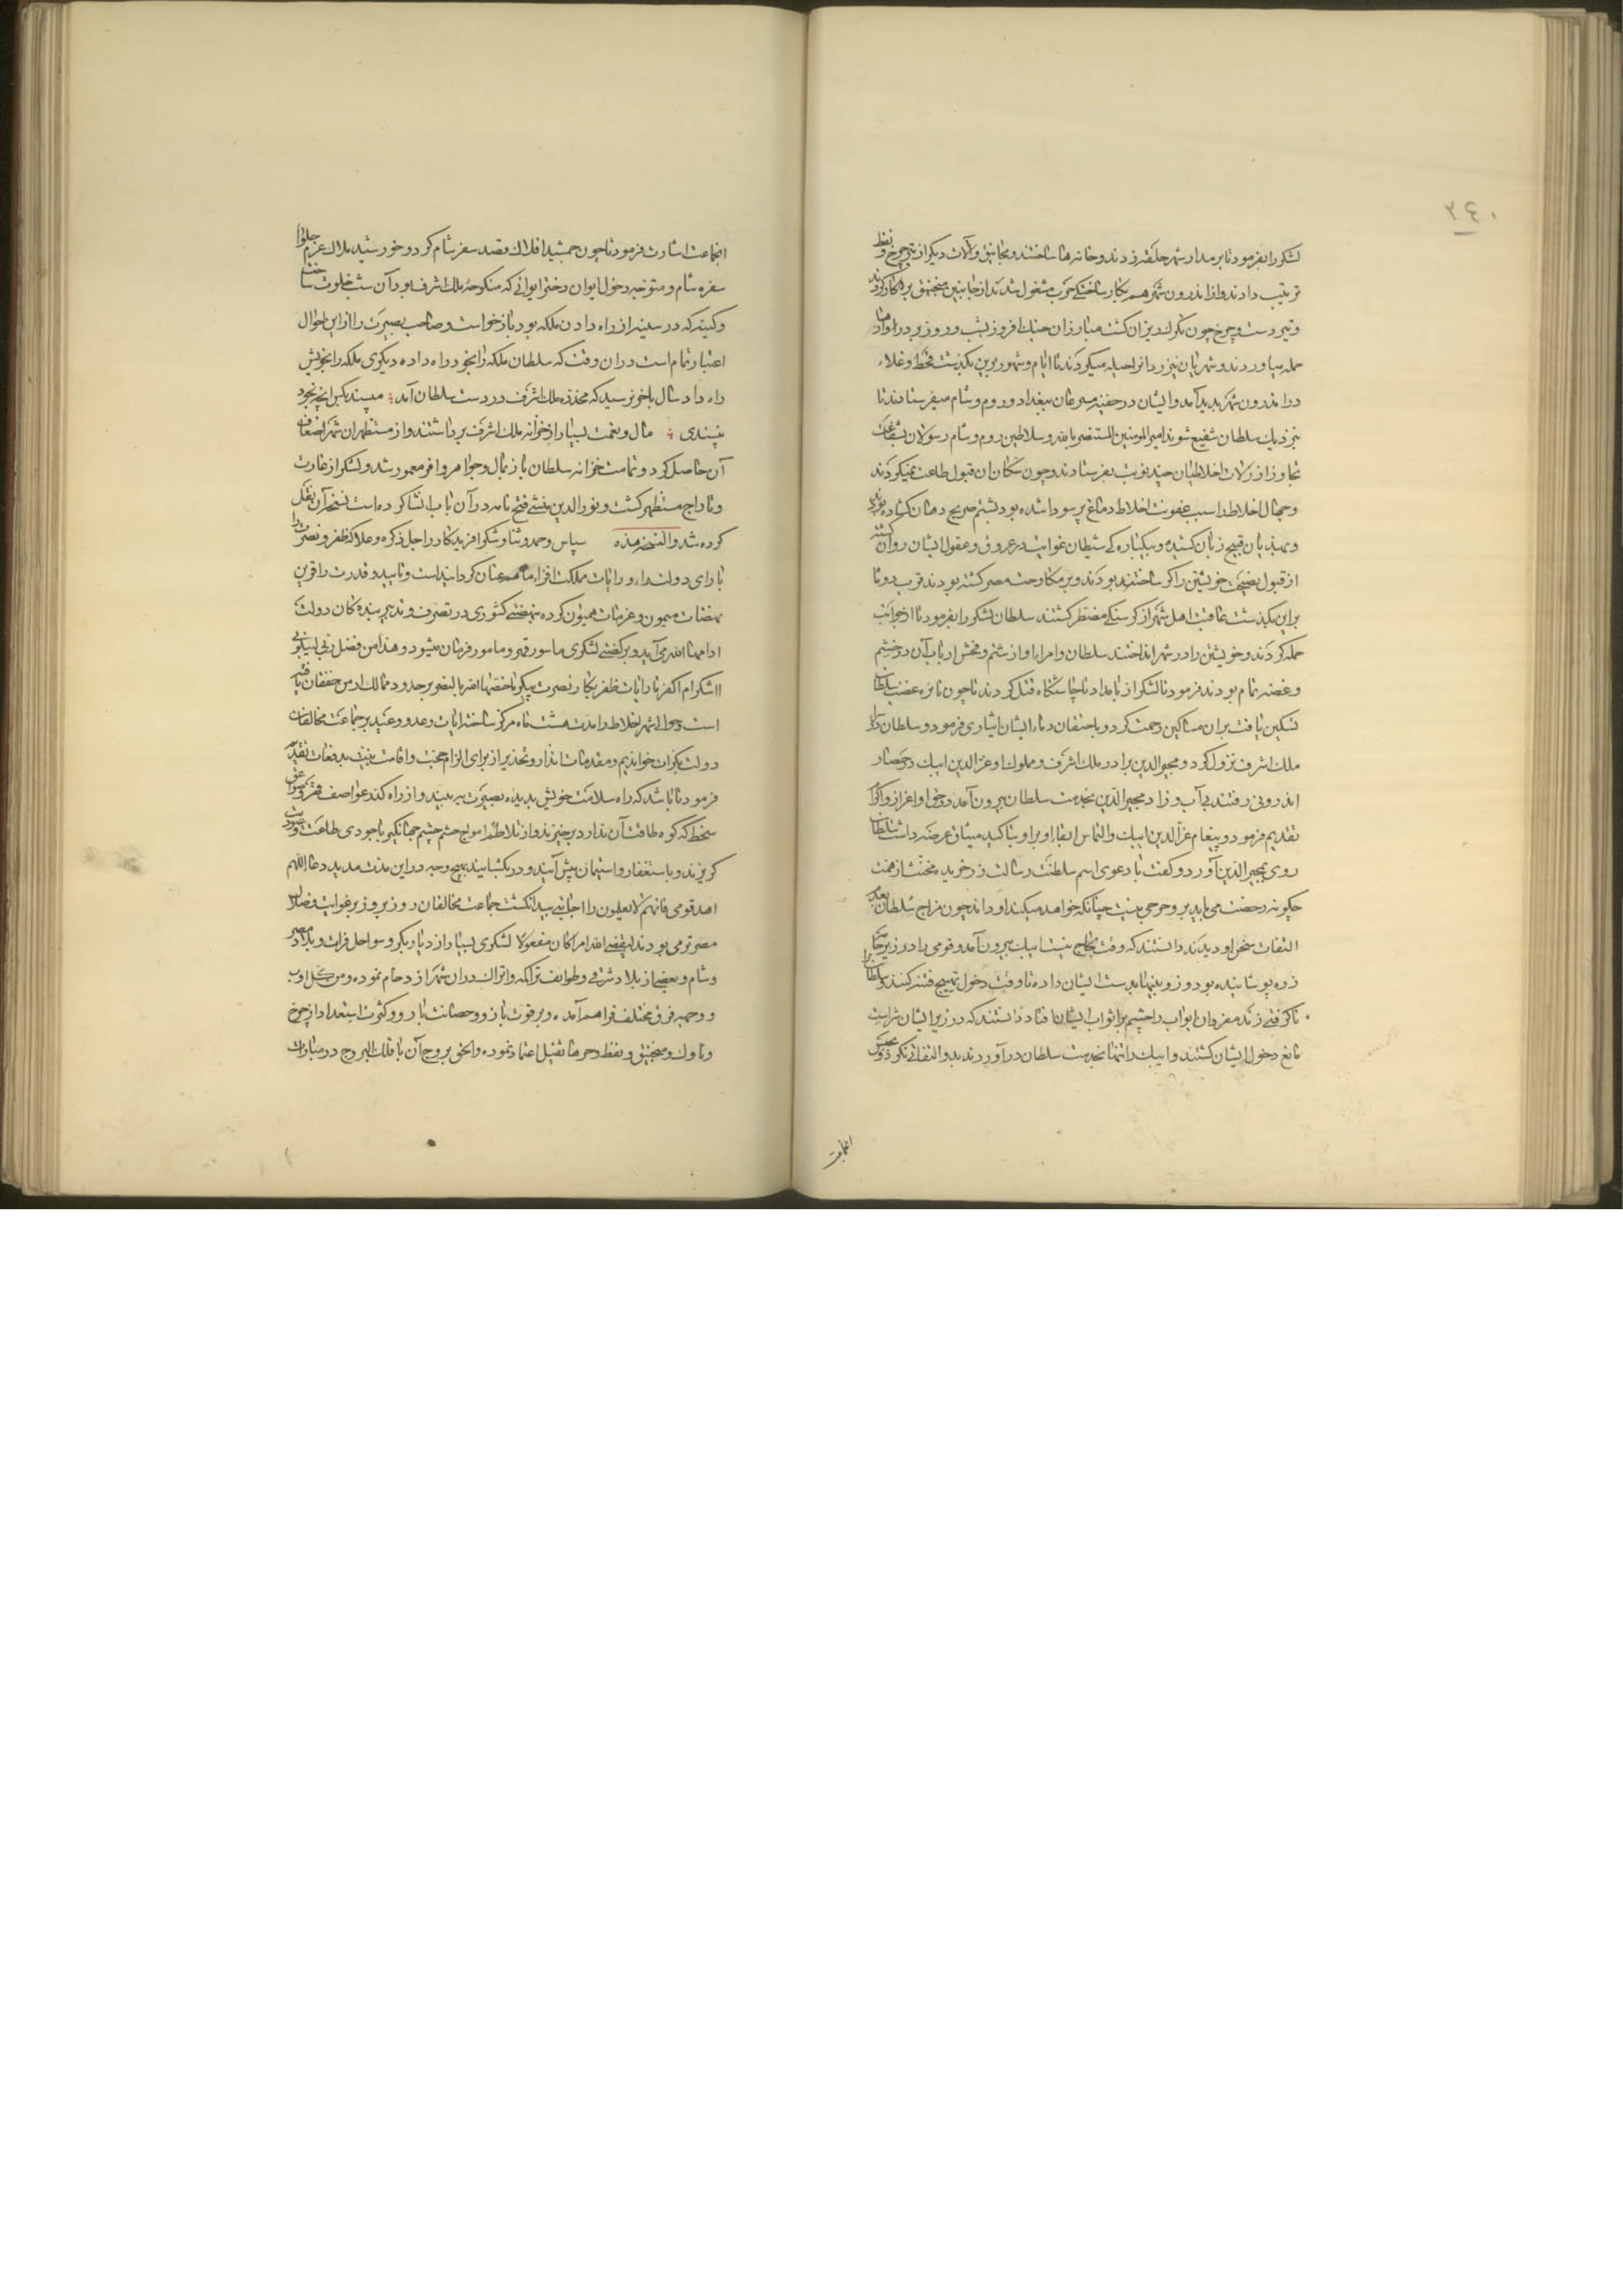 ۲٤۰
لشکر را بفرمود تا بر مدار شهر حلقه زدند و خانه ها ساختند و مجانیق و آلات دیگر از تیر چرخ و نفط
ترتیب دادند و از اندرون شهر هم بکار ساختگی حرب مشغول شدند از جانبین منجنیق بر کار کردند
و تیر دست و چرخ چون تگرگ ریزان گشت مبارزان جنگ افروز بشب و روز بر در دروازها
حمله میاوردند و شهریان نیز رد انر احیله میکردند تا ایام و شهور برین بگذشت قحط و غلاء
در اندرون شهر پدید آمد و ایشان در خفیه مسرعان ببغداد و روم و شام میفرستادند تا
بنزدیک سلطان شفیع شوند امیر المومنین المستنصر بالله و سلاطین روم و شام رسولان بشفاعت
تجاوز از زلات اخلاطیان چند نوبت بفرستادند و چون سکان آن قبول طاعت نمیکردند
و جهال اخلاط را سبب عفونت اخلاط دماغ پر سودا شده بود بشتم صریح دهان گشاده بودند
و بهذیان قبیح زبان کشیده و بیکباره کی شیطان غوایت در عروق و عقول ایشان روان گشته
از قبول نصیحت خویشتن را کر ساخته بودند و بر مکاوحت مصر گشته بودند قرب دو تا
براین بگذشت عاقبت اهل شهر از گرسنگی مضطر گشتند سلطان لشکر را بفرمود تا از جوانب
حمله کردند و خویشتن را در شهر انداختند سلطان و امراء او از شتم و فحش ارباب آن در خشم
و غصه تمام بودند فرمود تا لشکر از بامداد تا چاشتگاه قتل کردند تا چون نایره غضب سلطان
تسکین یافت بران مساکین رحمت کرد و باحتقان دماء ایشان اشارت فرمود و سلطان در سرای
ملک اشرف نزول کرد و مجیر الدین برادر ملک اشرف و مملوک او عز الدین ایبک در حصار
اندرونی رفتند بی آب و زاد مجیر الدین بخدمت سلطان بیرون آمد در حق او اعزاز و اکرام
تقدیم فرمود و پیغام عز الدین ایبک و التماس ابقاء او بر او بتاکید میثاق عرضه داشت سلطان
روی بمجیر الدین آورد و گفت با دعوی اسم سلطنت رسالت زر خریده مخنث از همت
چگونه رخصت می یابد پر و حرجی نیست چنانکه خواهد میکند او داند چون مزاج سلطان بعدم
التفات سخن او دیدند دانستند که وقت لجاج نیست ایبک بیرون آمد و قومی را در زیر جامه
زره پوشانیده بود و زوبینها بدست ایشان داده تا وقت دخول تهییج فتنه کنند و سلطان را
ناگرفتی زنند مفردان ابواب را چشم بر اثواب ایشان افتاد دانستند که در زیر ایشان شراست
مانع دخول ایشان گشتند و ایبک را تنها بخدمت سلطان در آوردند بدو التفاتی نکرد و بحبس
انجماعت
انجماعت اشارت فرمود تا چون جمشید افلاک قصد سفر شام کرد و خورشید ملاک عزم جلوا
سفره شام و متوجه دخول ایوان دختر ایوانی که منکوحه ملک اشرف بود آن شب خلوت ساخت
و کینه که در سینه از راه دادن ملکه بود باز خواست و صاحب بصیرت را از این احوال
اعتبار تمام است در ان وقت که سلطان ملکه را بخود راه داده دیگری ملکه را بخویش
راه داد سال باخر نرسید که مخدره ملک اشرف در دست سلطان آمد مپسند بکس انچه بخود
نپسندی مال و نعمت بسیار از خزانه ملک اشرف برداشتند و از مستظهران شهر اضعاف
آن حاصل کرد و تمامت خزانه سلطان باز بمال و جواهر وافر معمور شد و لشکر از غارت
و تاراج مستظهر گشت و نور الدین منشی فتح نامه در آن باب انشا کرده است نسخه آن نقل
کرده شد و النسخه هذه سپاس و حمد و ثنا و شکر افریدگار را جل ذکره و علا که ظفر و نصرت را
با رای دولت‌ارا و رایات مملکت افزاء ما هم عنان گردانیده است و تایید و قدرت را قرین
نهضات میمون و عزمات همیون کرده بنهضتی کشوری در تصرف و تدبیر بنده کان دولت
ادامها الله می آید و بر کفتی لشکری ماسور قهر و مامور فرمان میشود و هذا من فضل ربی لیبلونی
ااشکر ام اکفر تا رایات ظفر نگار نصرت پیکر ما خصها الله بالنصر بر حدود ممالک ارمن خفقان یافته
است و حوالی شهر اخلاط را مدت هشت ماه مرکز ساخته رایات وعد و وعید بر جماعت مخالفان
دولت بکرات خواندیم و مقدمات انذار و تحذیر از برای الزام حجت و اقامت بینت بدفعات تقدیم
فرمود تا باشد که راه سلامت خویش بدیده بصیرت به بینند و از راه کند عواصف قهر و صواعق
سخط که کوه طاقت آن ندارد بر خیزند و از تلاطم امواج حشم خشم جهانگیر با جودی طاعت و عبودیت
گریزند و باستغفار و استیمان پیش آیند و در بگشایند بهیچ وجه در این مدت مدید دعا اللهم
اهد قومی فانهم لا یعلمون را اجابتی پیدا نگشت جماعت مخالفان روز بروز بر غوایت و ضلال
مصرتر می بودند لیقضی الله امرا کان مفعولا لشکری بسیار از دیار بکر و سواحل فرات و بلاد مصر
و شام و بعضی از بلاد شرقی و طوایف تراکمه و اتراک در ان شهر ازدحام نموده و من کل اوب
و وجه فرق مختلف فراهم آمده و بر قوت بازو و حصانت بارو و کثرت استعداد از چرخ
و ناوک و منجنیق و نفط و جر ما ثقیل اعتماد نموده و الحق بروج آن با فلک البروج در مبارات